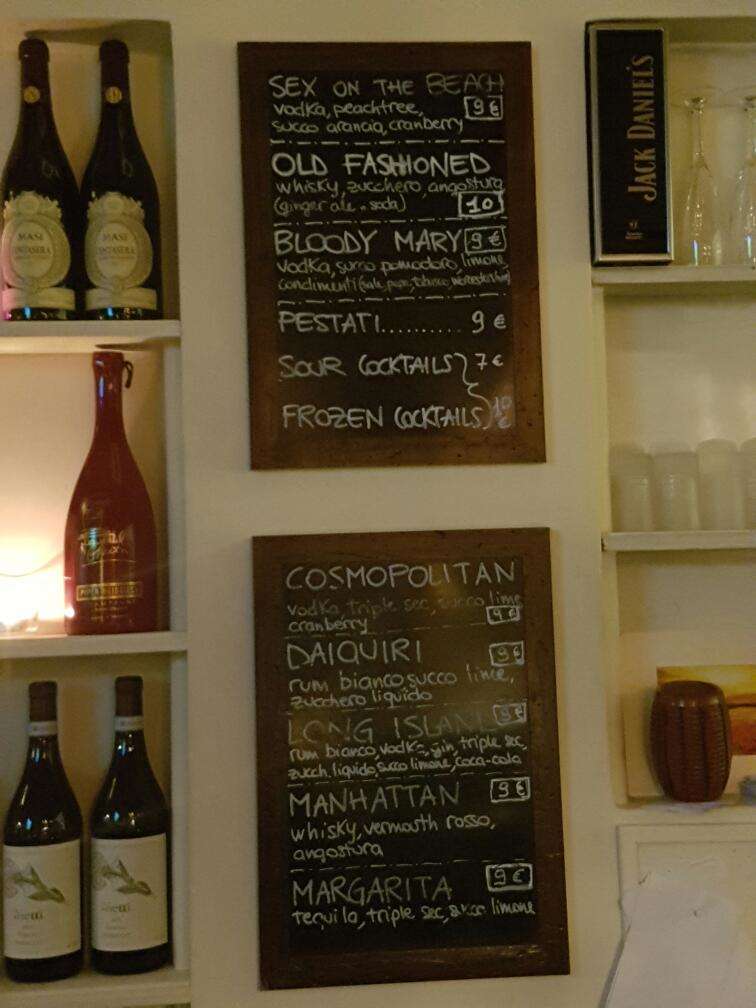 SEX ON THE BEACH
vodka, peachtree, 9 €
succo arancia, cranberry
OLD FASHIONED
whisky, zucchero, angostura
(ginger ale o soda) 10
BLOODY MARY 9 €
vodka, succo pomodoro, limone
condimenti (sale, pepe, tabasco, worcestershire)
PESTATI.......... 9 €
SOUR COCKTAILS 7 €
FROZEN COCKTAILS 10 €
COSMOPOLITAN
vodka, triple sec, succo lime
cranberry 9 €
DAIQUIRI 9 €
rum bianco, succo lime,
zucchero liquido
LONG ISLAND 9 €
rum bianco, vodka, gin, triple sec,
zucch. liquido, succo limone, coca-cola
MANHATTAN 9 €
whisky, vermouth rosso,
angostura
MARGARITA 9 €
tequila, triple sec, succo limone
JACK DANIEL'S
MASI
COSTASERA
MASI
COSTASERA